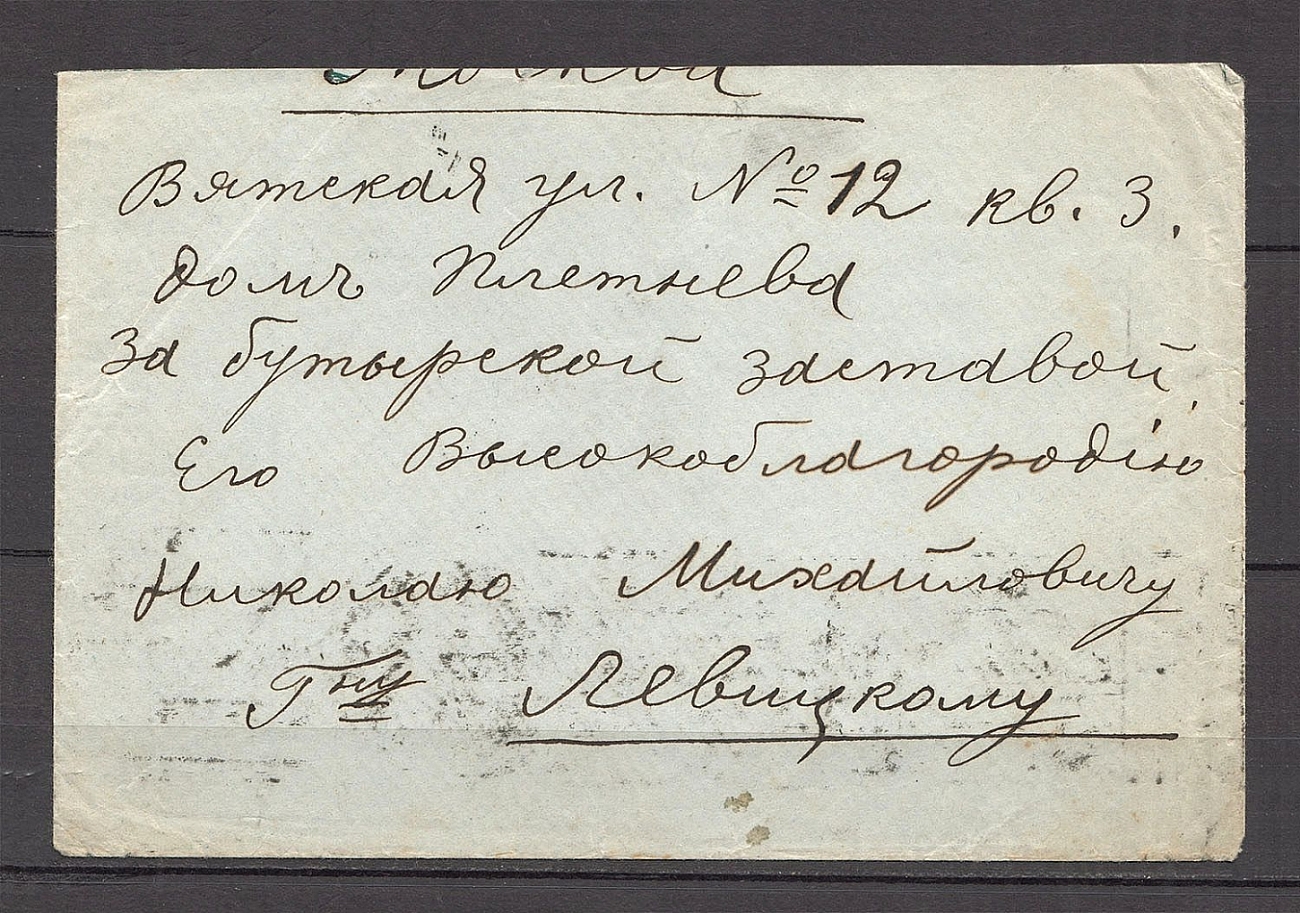 Москва
Вятская ул. № 12 кв. 3.
домъ Плетнева
за бутырской заставой
Его Высокоблагородію
Николаю Михайловичу
Гну Левицкому